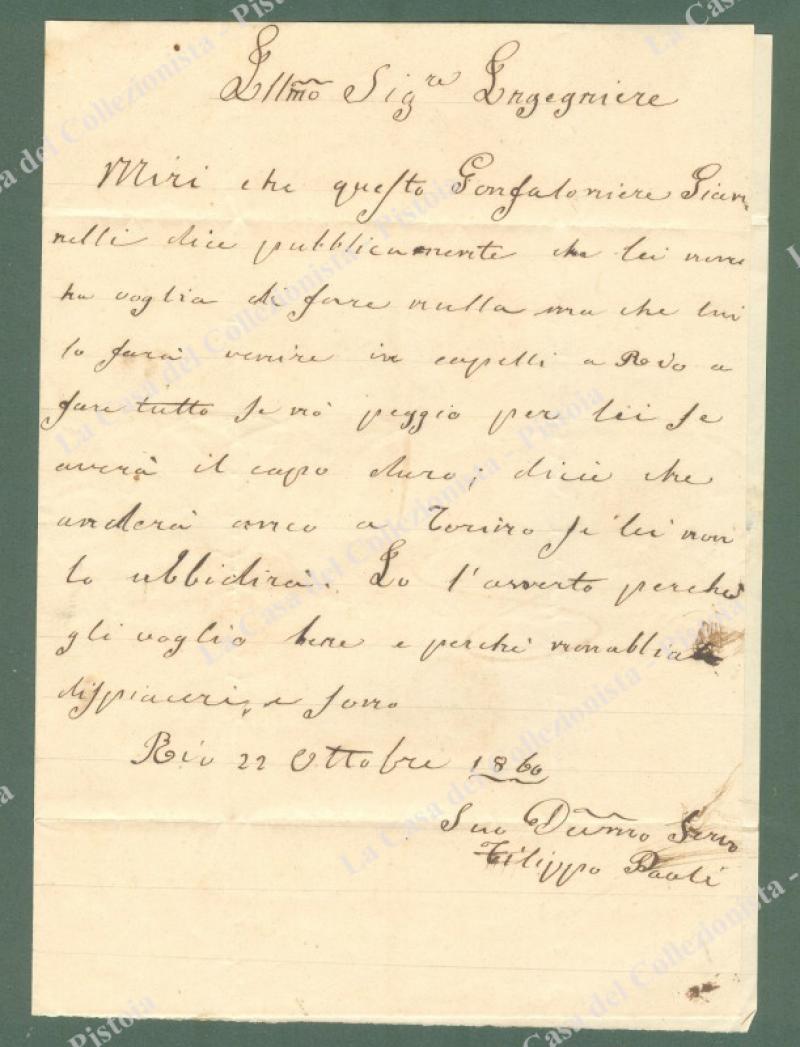 Illmo Sigre Ingegniere
Miri che questo Gonfaloniere Gian,
nelli dice pubblicamente che lei none
ha voglia di fare nulla ma che lui
lo farà venire in capelli a Rio a
fare tutto se nò peggio per lei se
averà il capo duro; dice che
anderà anco a Torino se lei non
lo ubbidirà. Io l'averto perchè
gli voglio bene e perchè non abbia
dispiaceri, e sono
Rio 22 Ottobre 1860
Suo Devmo Servo
Filippo Paoli
La Casa del Collezionista - Pistoia